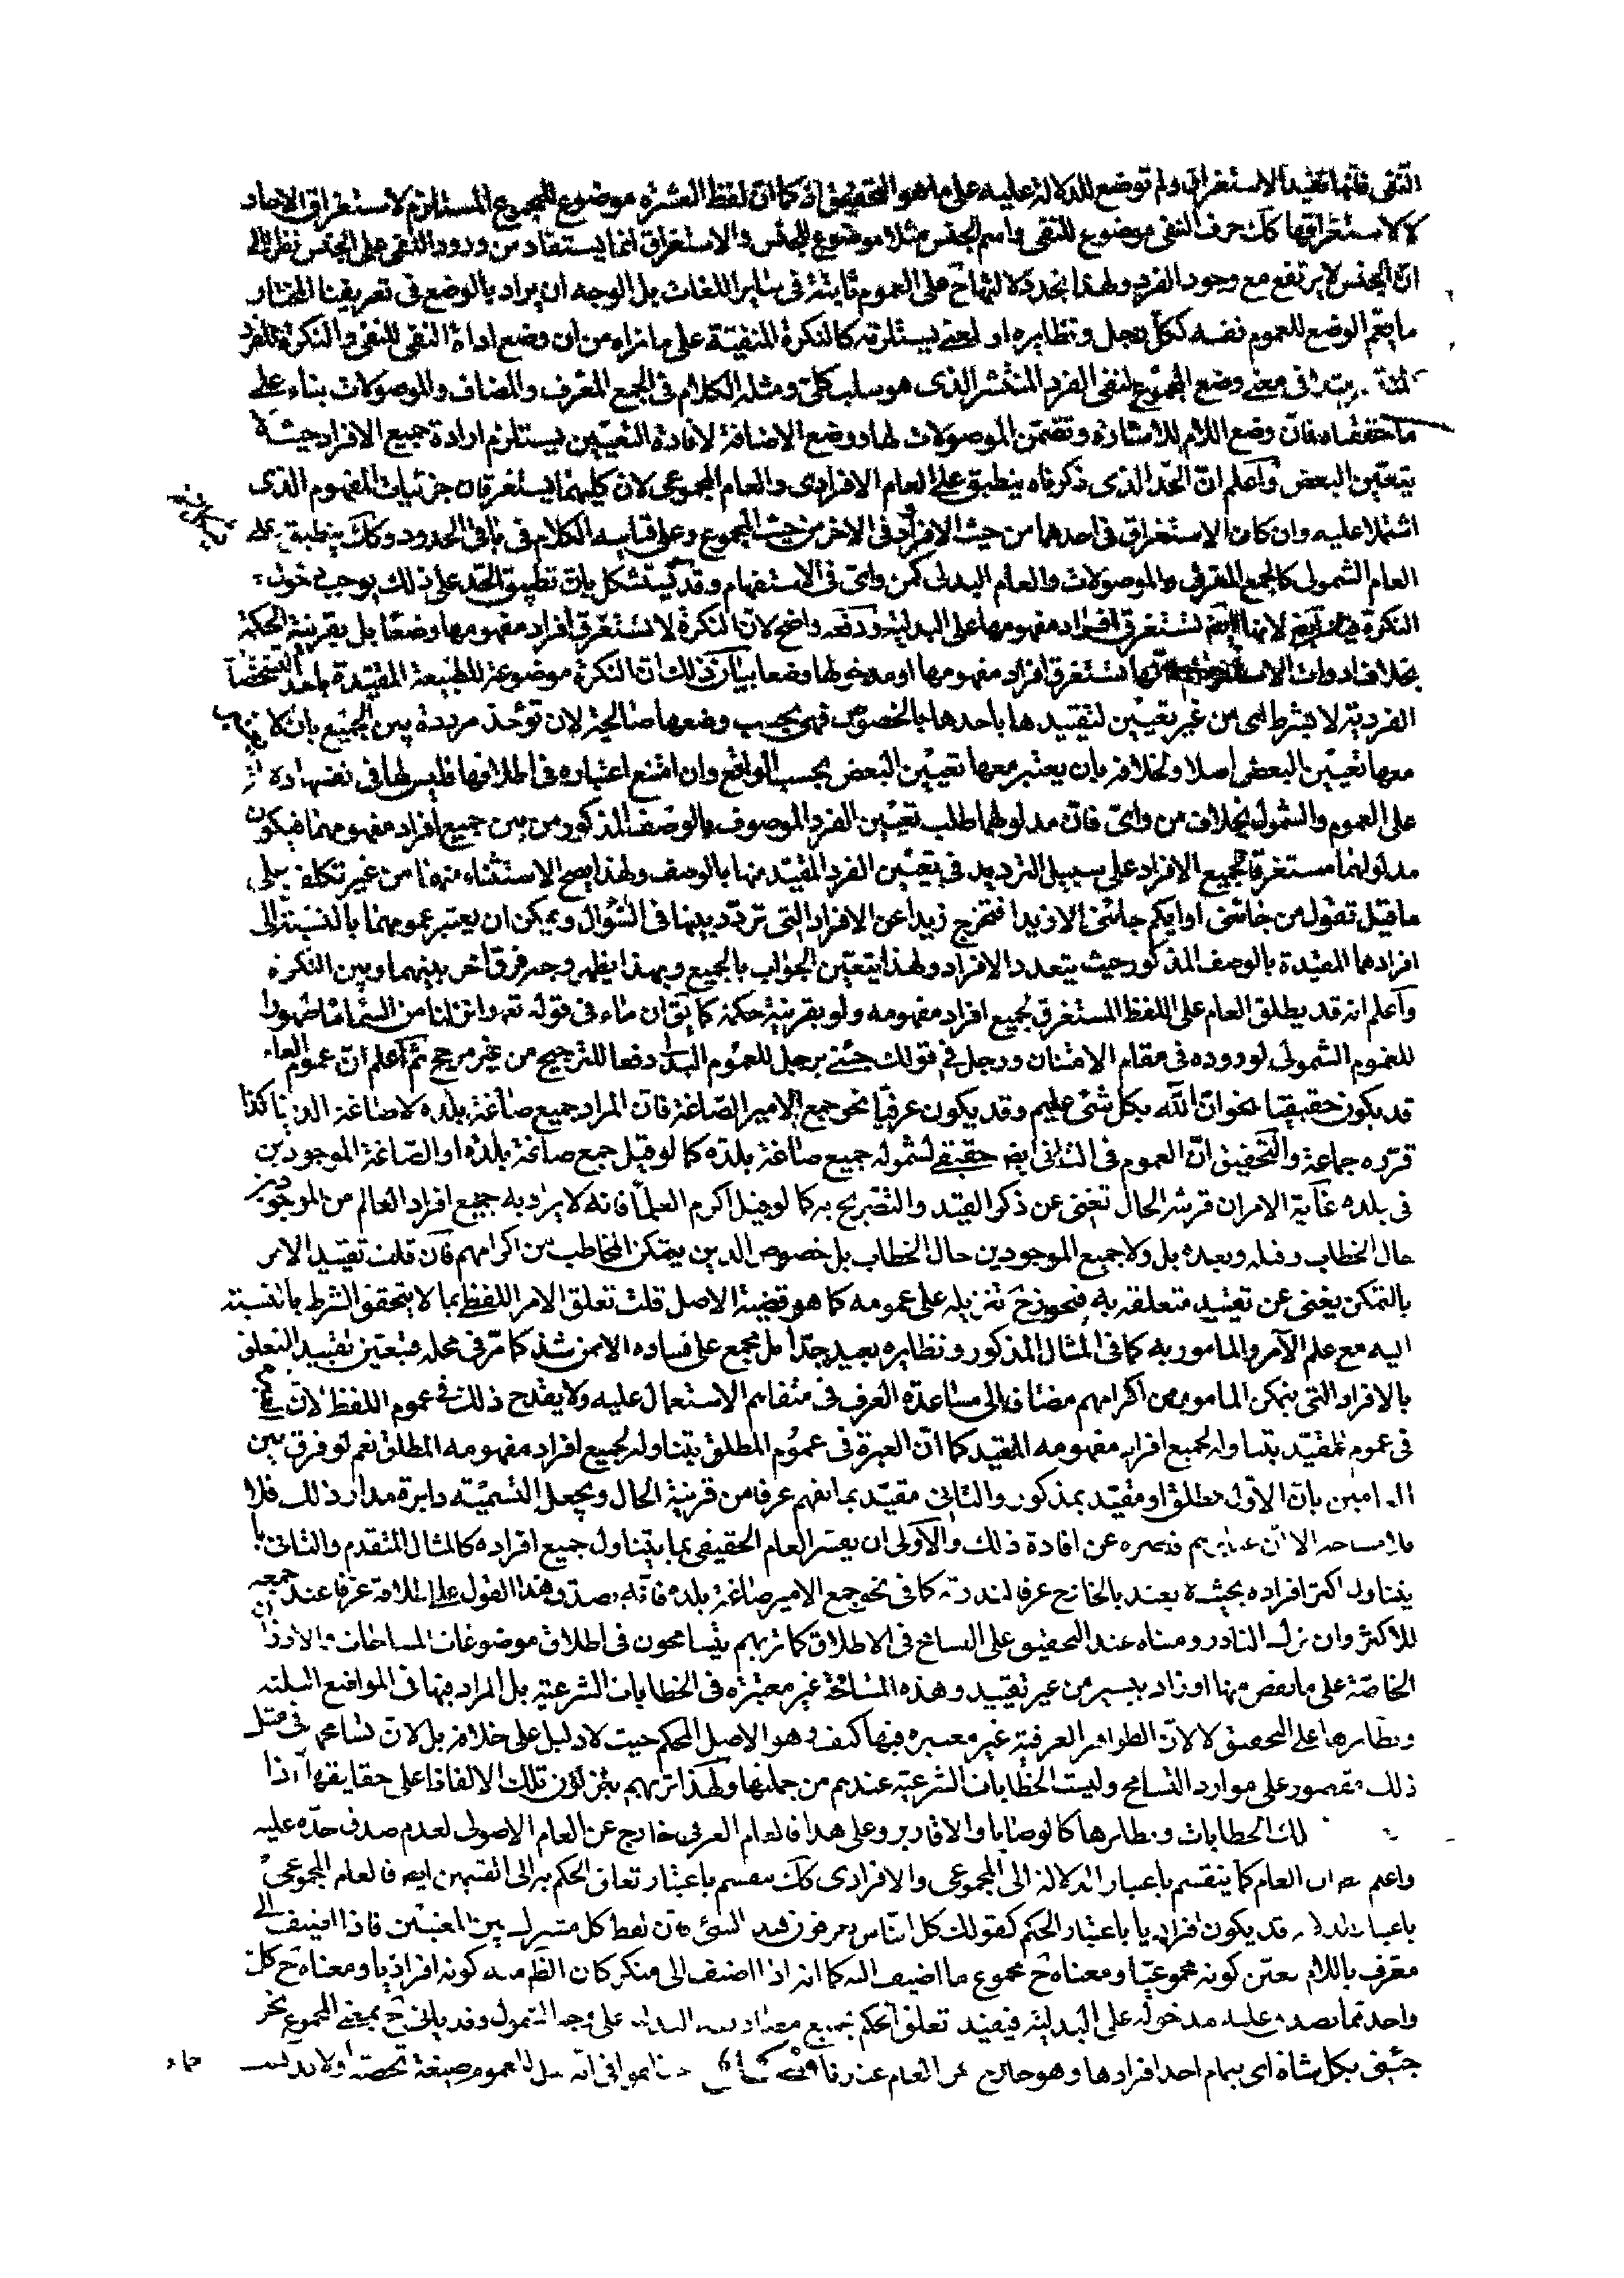 النفى فانها تفيد الاستغراق ولم توضع للدلالة عليه على ما هو التحقيق اذ كما ان لفظ العشرة موضوع للمجموع المستلزم لاستغراق الاحاد
لا لاستغراقها كك حرف النفى موضوع للنفى واسم الجنس مثلا موضوع للجنس والاستغراق انما يستفاد من ورود النفى على الجنس نظرا الى
ان الجنس لا يرتفع مع وجود الفرد ولهذا نجد دلالتها ح على العموم ثابتة فى ساير اللغات بل الوجه ان يراد بالوضع فى تعريفنا المختار
ما يعم الوضع للعموم نفسه ككل رجل ونظايره او لمعنى يستلزمه كالنكرة المنفية على ما نراه من ان وضع اداة النفى للنفى والنكرة للفرد
فى معنى وضع المجموع لنفى الفرد المنتشر الذى هو سلب كلى ومثله الكلام فى الجمع المعرف والمضاف والموصولات بناء على
ما حققناه فان وضع اللام للاشارة وتضمن الموصولات لها ووضع الاضافة لافادة التعيين يستلزم ارادة جميع الافراد حيث لا
يتعين البعض واعلم ان الحد الذى ذكرناه ينطبق على العام الافرادى والعام المجموعى لان كليهما يستغرقان جزئيات المفهوم الذى
اشتملا عليه وان كان الاستغراق فى احدهما من حيث الافراد وفى الاخر من حيث المجموع وعلى قياسه الكلام فى باقى الحدود وكك ينطبق على
العام الشمولى كالجمع المعرف والموصولات والعام البدلى كمن واى فى الاستفهام وقد يستشكل بان تطبيق الحد على ذلك يوجب دخول
النكرة لانها ايضا تستغرق افراد مفهومها على البدلية ودفعه واضح لان النكرة لا تستغرق افراد مفهومها وضعا بل بقرينة الحكمة
بخلاف ادوات تستغرق افراد مفهومها او مدخولها وضعا بيان ذلك ان النكرة موضوعة للطبيعة المقيدة باحد التشخصات
الفردية لا بشرط اى من غير تعيين لتقييدها باحدها بالخصوص فهى بحسب وضعها صالحة لان تؤخذ مرددة بين الجميع بان لا يعتبر
معها تعيين البعض اصلا وبخلافه بان يعتبر معها تعيين البعض بحسب الواقع وان امتنع اعتباره فى اطلاقها فليس لها فى نفسها دلالة
على العموم والشمول بخلاف من واى فان مدلولهما طلب تعيين الفرد الموصوف بالوصف المذكور من بين جميع افراد مفهومهما فيكون
مدلولهما مستغرقا لجميع الافراد على سبيل الترديد فى تعيين الفرد المقيد منها بالوصف ولهذا يصح الاستثناء منهما من غير تكلف على
ما قيل تقول من جائنى او ايكم جائنى الا زيدا فتخرج زيدا عن الافراد التى تردد بينها فى السؤال ويمكن ان يعتبر عمومهما بالنسبة الى
افرادهما المقيدة بالوصف المذكور حيث يتعدد الافراد ولهذا يتعين الجواب بالجميع وبهذا يظهر وجه فرق اخر بينهما وبين النكرة
واعلم انه قد يطلق العام على اللفظ المستغرق لجميع افراد مفهومه ولو بقرينة حكمة كما يق ان ماء فى قوله تعه وانزلنا من السماء ماء طهورا
للعموم الشمولى لوروده فى مقام الامتنان ورجل فى قولك جئنى برجل للعموم البدلى دفعا للترجيح من غير مرجح ثم اعلم ان عموم العام
قد يكون حقيقيا نحو ان الله بكل شئ عليم وقد يكون عرفيا نحو جمع الامير الصاغة فان المراد جميع صاغة بلده لا صاغة الدنيا كذا
قرره جماعة والتحقيق ان العموم فى الثانى ايض حقيقى لشموله جميع صاغة بلده كما لو قيل جمع صاغة بلده او الصاغة الموجودين
فى بلده غاية الامر ان قرينة الحال تغنى عن ذكر القيد والتصريح به كما لو قيل اكرم العلماء فانه لا يراد به جميع افراد العالم من الموجودين
حال الخطاب وقبله وبعده بل ولا جميع الموجودين حال الخطاب بل خصوص الذين يتمكن المخاطب من اكرامهم فان قلت تقييد الامر
بالتمكن يغنى عن تقييد متعلقه به فيجوز ح تنزيله على عمومه كما هو قضية الاصل قلت تعلق الامر اللفظى بما لا يتحقق الشرط بالنسبة
اليه مع علم الآمر والمامور به كما فى المثال المذكور ونظايره بعيد جدا بل مجمع على فساده الا من شذ كما مر فى محله فتعين تقييد التعلق
بالافراد التى يتمكن المامور من اكرامهم مضافا الى مساعدة العرف فى متفاهم الاستعمال عليه ولا يقدح ذلك فى عموم اللفظ لان
فى عموم المقيد بتناوله لجميع افراد مفهومه المقيد كما ان العبرة فى عموم المطلق بتناوله لجميع افراد مفهومه المطلق نعم لو فرق بين
بان الاول مطلق او مقيد بمذكور والثانى مقيد بما انفهم عرفا من قرينة الحال ويجعل التسمية دايرة مدار ذلك فلا
الا ان عن افادة ذلك والاولى ان يفسر العام الحقيقى بما يتناول جميع افراده كالمثال المتقدم والثانى بما
يتناول اكثر افراده بحيث يعتد بالخارج عرفا لندرته كما فى نحو جمع الامير صاغة بلده فانه يصدق هذا القول على اطلاقه عرفا عند جمعه
للاكثر وان ترك النادر ومبناه عند التحقيق على التسامح فى الاطلاق كما تريهم يتسامحون فى اطلاق موضوعات المساحات والاوزان
الخاصة على ما نقص منها او زاد بيسير من غير تقييد وهذه المسامحة غير معتبرة فى الخطابات الشرعية بل المراد فيها فى المواضع
ونظايرها على التحقيق لا لان الظواهر العرفية غير معتبرة فيها كيف وهو الاصل المحكم حيث لا دليل على خلافه بل لان تسامحهم فى مثل
ذلك مقصور على موارد التسامح وليست الخطابات الشرعية عندهم من جملتها ولهذا تريهم ينزلون تلك الالفاظ على حقايقها اذا
تلك الخطابات ونظايرها كالوصايا والاقارير وعلى هذا فالعام العرفى خارج عن العام الاصولى لعدم صدق حده عليه
واعلم ان العام كما ينقسم باعتبار الدلالة الى المجموعى والافرادى كك ينقسم باعتبار تعلق الحكم به الى القسمين ايض فالعام المجموعى
باعتبار الدلالة قد يكون افراديا باعتبار الحكم كقولك كل الناس يعرفون هذا الشئ فان لفظ كل مشترك بين المعنيين فاذا اضيف الى
معرف باللام تعين كونه مجموعيا ومعناه ح مجموع ما اضيف اليه كما انه اذا اضيف الى منكر كان الظ منه كونه افراديا ومعناه ح كل
واحد مما يصدق عليه مدخوله على البدلية فيفيد تعلق الحكم بجميع على وجه الشمول وقد ياتى ح بمعنى المجموع نحو
جئنى بكل شاة اى بتمام احد افرادها وهو خارج عن العام عندنا